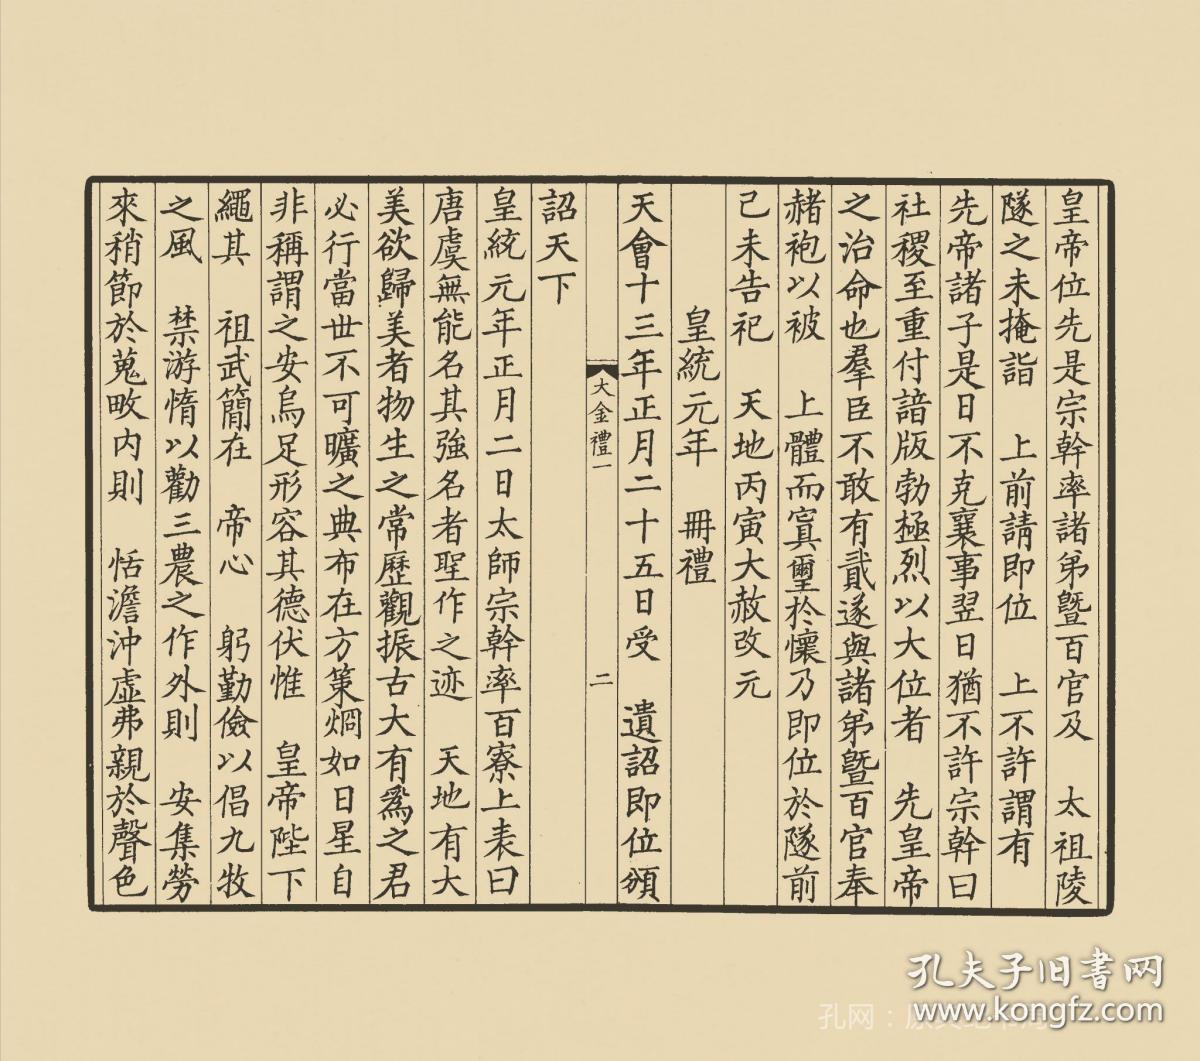 皇帝位先是宗幹率諸弟曁百官及　太祖陵
隧之未掩詣　上前請即位　上不許謂有
先帝諸子是日不克襄事翌日猶不許宗幹曰
社稷至重付諳版勃極烈以大位者　先皇帝
之治命也羣臣不敢有貳遂與諸弟曁百官奉
赭袍以被　上體而寘璽於懷乃即位於隧前
己未告祀　天地丙寅大赦改元
皇統元年　冊禮
天會十三年正月二十五日受　遺詔即位頒
大金禮一
二
詔天下
皇統元年正月二日太師宗幹率百寮上表曰
唐虞無能名其強名者聖作之迹　天地有大
美欲歸美者物生之常歷觀振古大有爲之君
必行當世不可曠之典布在方策烱如日星自
非稱謂之安烏足形容其德伏惟　皇帝陛下
繩其　祖武簡在　帝心　躬勤儉以倡九牧
之風　禁游惰以勸三農之作外則　安集勞
來稍節於蒐畋内則　恬澹沖虛弗親於聲色
孔夫子旧书网
www.kongfz.com